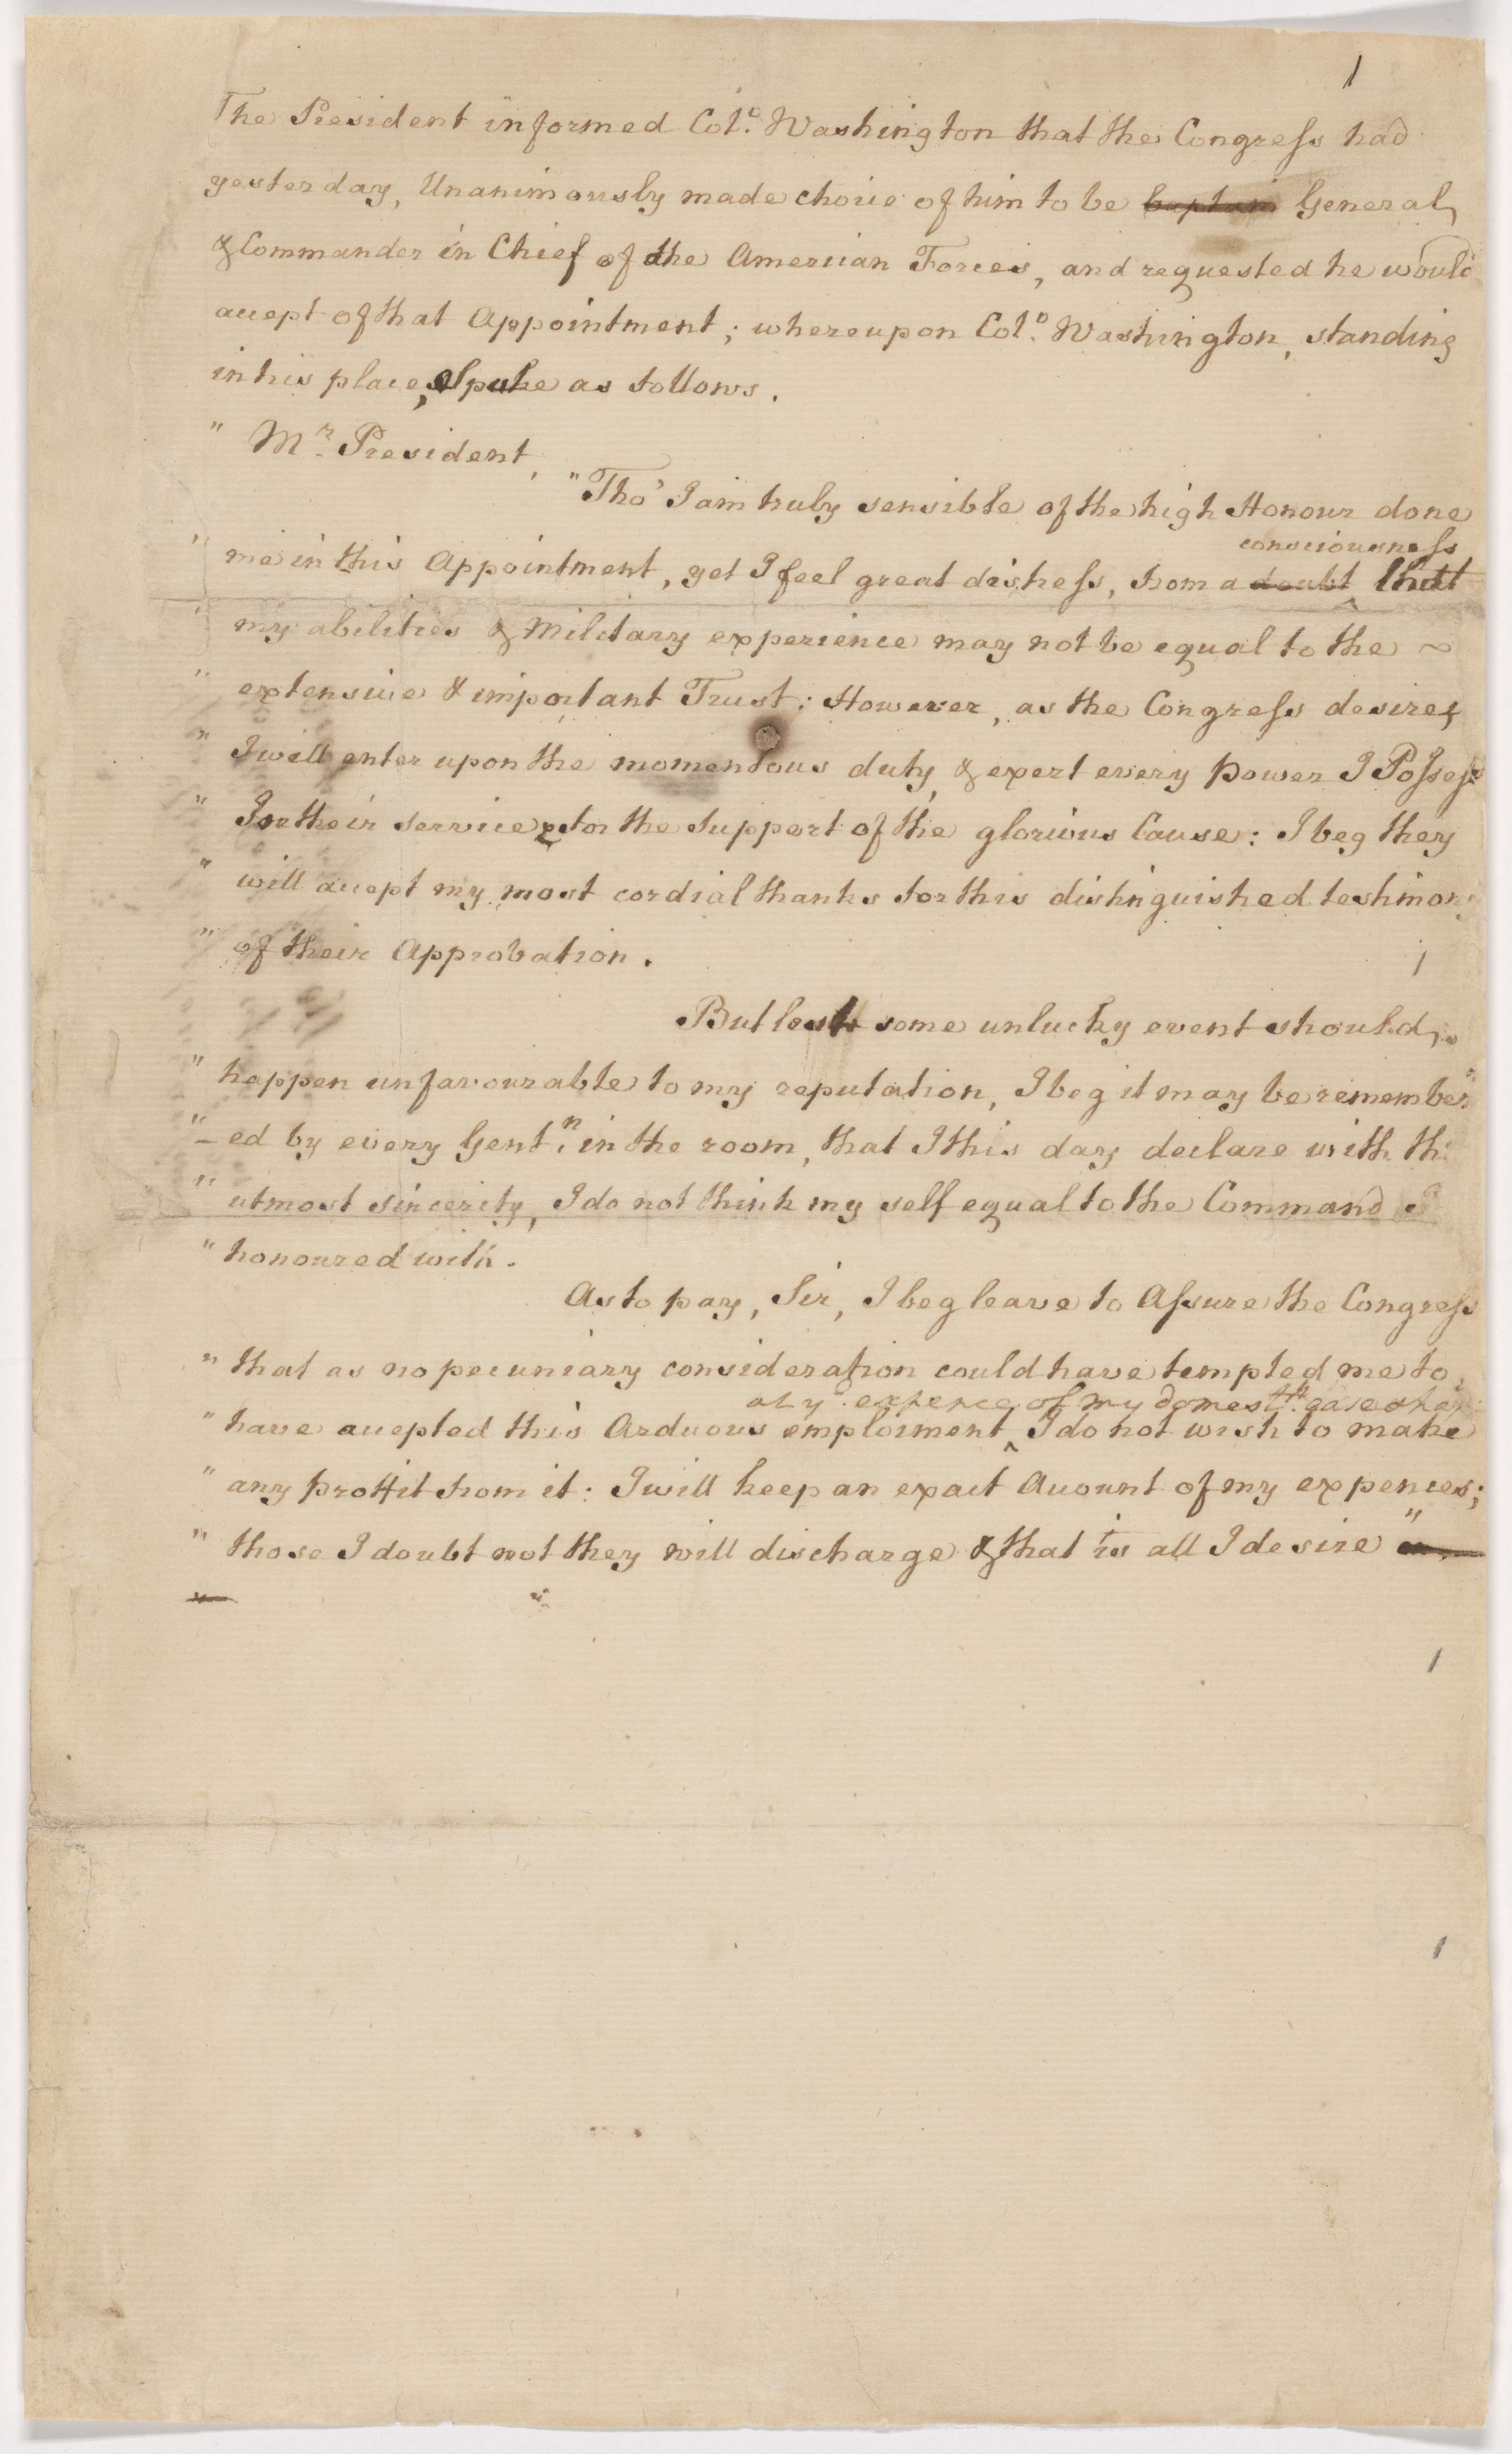 1
The President informed Colo. Washington that the Congress had
yesterday, Unanimously made choice of him to be General
& Commander in Chief of the American Forces, and requested he would
accept of that Appointment; whereupon Colo. Washington, standing
in his place, Spake as follows.
" Mr. President,
"Tho' I am truly sensible of the high Honour done
consciousness
" me in this Appointment, yet I feel great distress, from a doubt ^ that
" my abilities & Military experience may not be equal to the ~
" extensive & important Trust: However, as the Congress desire,
" I will enter upon the momentous duty, & exert every power I Possess
" In their service & for the Support of the glorious Cause: I beg they
" will accept my most cordial thanks for this distinguished testimony
" of their Approbation.
1
But lest some unlucky event should
" happen unfavourable to my reputation, I beg it may be remember
"-ed by every Gentn. in the room, that I this day declare with th
" utmost sincerity, I do not think my self equal to the Command I
" honoured with.
As to pay, Sir, I beg leave to Assure the Congress
" that as no pecuniary consideration could have tempted me to
at ye. expence of my domestt. ease & hap
" have accepted this Arduous emploiment ^ I do not wish to make
" any proffit from it: I will keep an exact Account of my expences;
" those I doubt not they will discharge & that is all I desire "
1
1